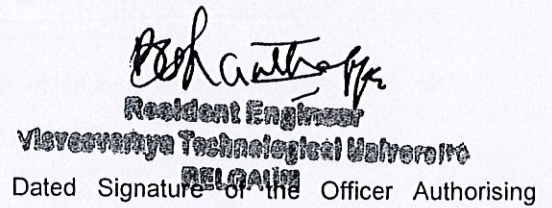 Resident Engineer
Visvesvaraya Technological University
BELGAUM
Dated Signature of the Officer Authorising